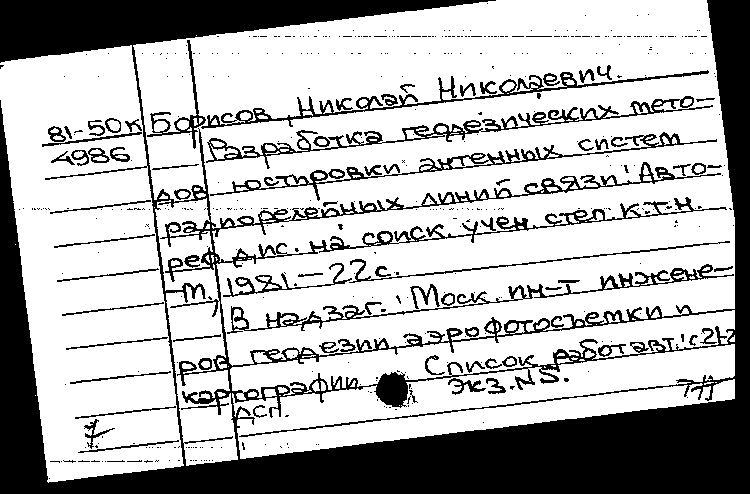 81-50к Борисов, Николай Николаевич.
4986 Разработка геодезических мето-
дов юстировки антенных систем
радиорелейных линий связи: Авто-
реф. дис. на соиск. учен. степ. к.т.н.
-М., 1981.-22с.
В надзаг.: Моск. ин-т инжене-
ров геодезии, аэрофотосъемки и
картографии. Список работ авт.: с.21-2
ДСП. Экз. N5.